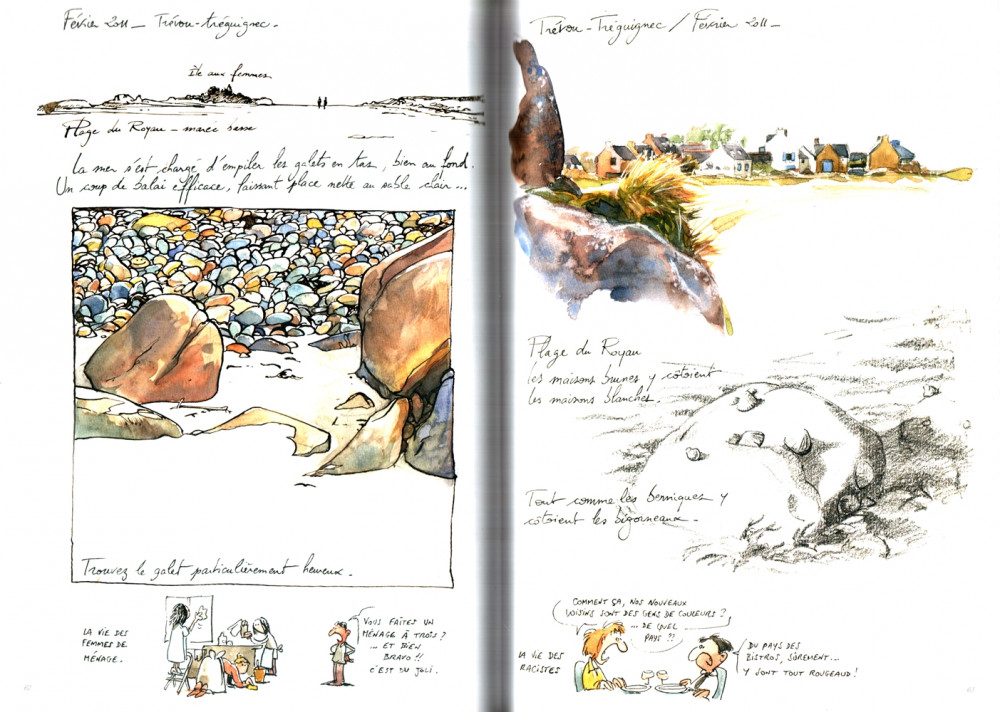 Février 2011 _ Trévou-tréguignec.
Île aux femmes
Plage du Royau _ marée basse
La mer s'est chargé d'empiler les galets en tas, bien au fond.
Un coup de balai efficace, laissant place nette au sable clair...
Trouvez le galet particulièrement heureux.
LA VIE DES
FEMMES DE
MÉNAGE.
VOUS FAITES UN
MÉNAGE À TROIS ?
... ET BIEN
BRAVO !!
C'EST DU JOLI.
62
Trévou-Tréguignec / Février 2011_
Plage du Royau
les maisons brunes y côtoient
les maisons blanches.
Tout comme les berniques y
côtoient les bigorneaux.
COMMENT ÇA, NOS NOUVEAUX
VOISINS SONT DES GENS DE COULEURS ?
... DE QUEL
PAYS ??
LA VIE DES
RACISTES
DU PAYS DES
BISTROS, SÛREMENT...
Y SONT TOUT ROUGEAUD !
63